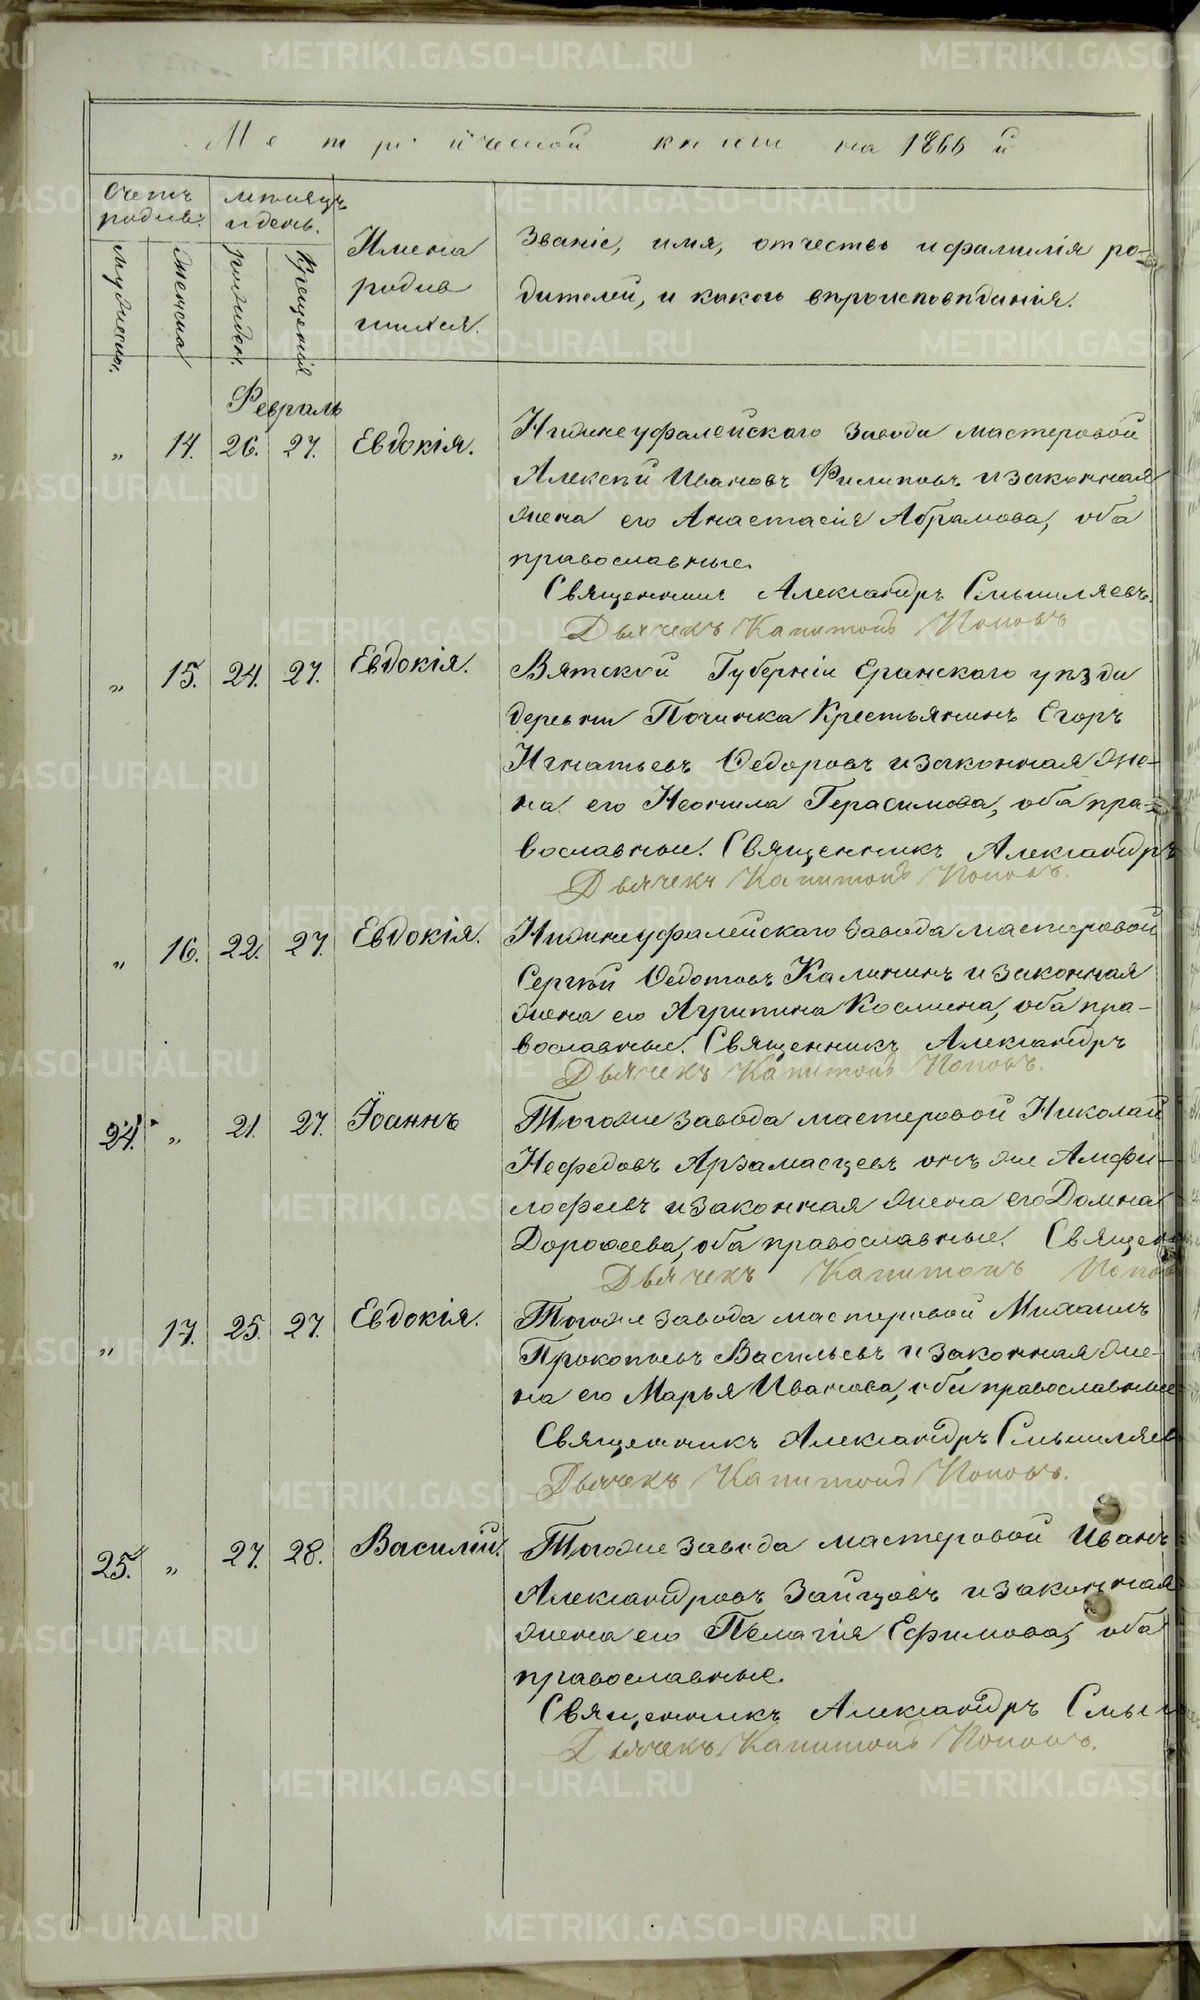 Метрической книги на 1866 й
Счетъ родив: мѣсяцъ и день. Имена родив шихся. Званіе, имя, отчество и фамилія ро-
дителей, и какого вѣроисповѣданія.
мужескій женска рожден. крещенія
Февраль
„ 14. 26. 27. Евдокія. Нижнеуфалейскаго завода мастеровой
Алексѣй Ивановъ Филиповъ и законная
жена его Анастасія Абрамова, оба
православные.
Священникъ Александръ Смышляевъ.
Дьячекъ Капитонъ Поповъ
„ 15. 24. 27. Евдокія. Вятской Губерніи Еранскаго уѣзда
деревни Починка Крестьянинъ Егоръ
Игнатьевъ Ѳедоровъ и законная же-
на его Неонила Герасимова, оба пра-
вославные. Священникъ Александръ
Дьячекъ Капитонъ Поповъ.
„ 16. 22. 27. Евдокія. Нижнеуфалейскаго завода мастеровой
Сергѣй Ѳедотовъ Калининъ и законная
жена его Агрипина Космина, оба пра-
вославные. Священникъ Александръ
Дьячекъ Капитонъ Поповъ.
24. „ 21. 27. Іоаннъ Тогоже завода мастеровой Николай
Нефедовъ Арзамасцевъ онъ же Амфи-
лофіевъ и законная жена его Домна
Дорофеева, оба православные. Священ
Дьячекъ Капитонъ Попов
„ 17. 25. 27. Евдокія. Тогоже завода мастеровой Михаилъ
Прокопьевъ Васильевъ и законная же-
на его Марья Иванова, оба православные
Священникъ Александръ Смышляев
Дьячекъ Капитонъ Поповъ.
25. „ 27. 28. Василій. Тогоже завода мастеровой Иванъ
Александровъ Зайцовъ и законная
жена его Пелагія Ефимова, оба
православные.
Священникъ Александръ Смыш
Дьячекъ Капитонъ Поповъ.